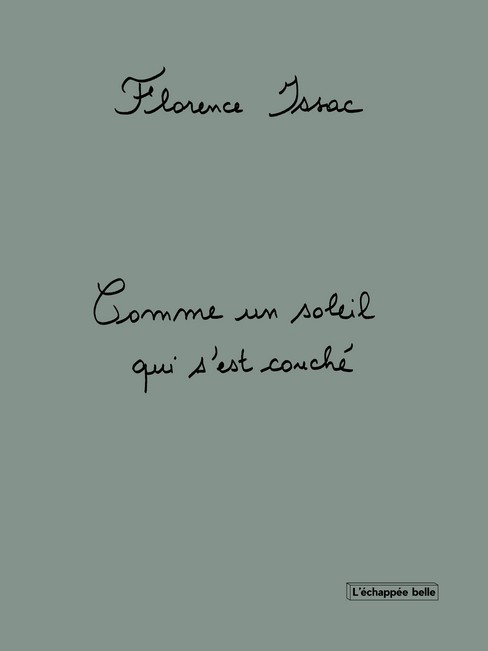 Florence Issac
Comme un soleil
qui s'est couché
L'échappée belle